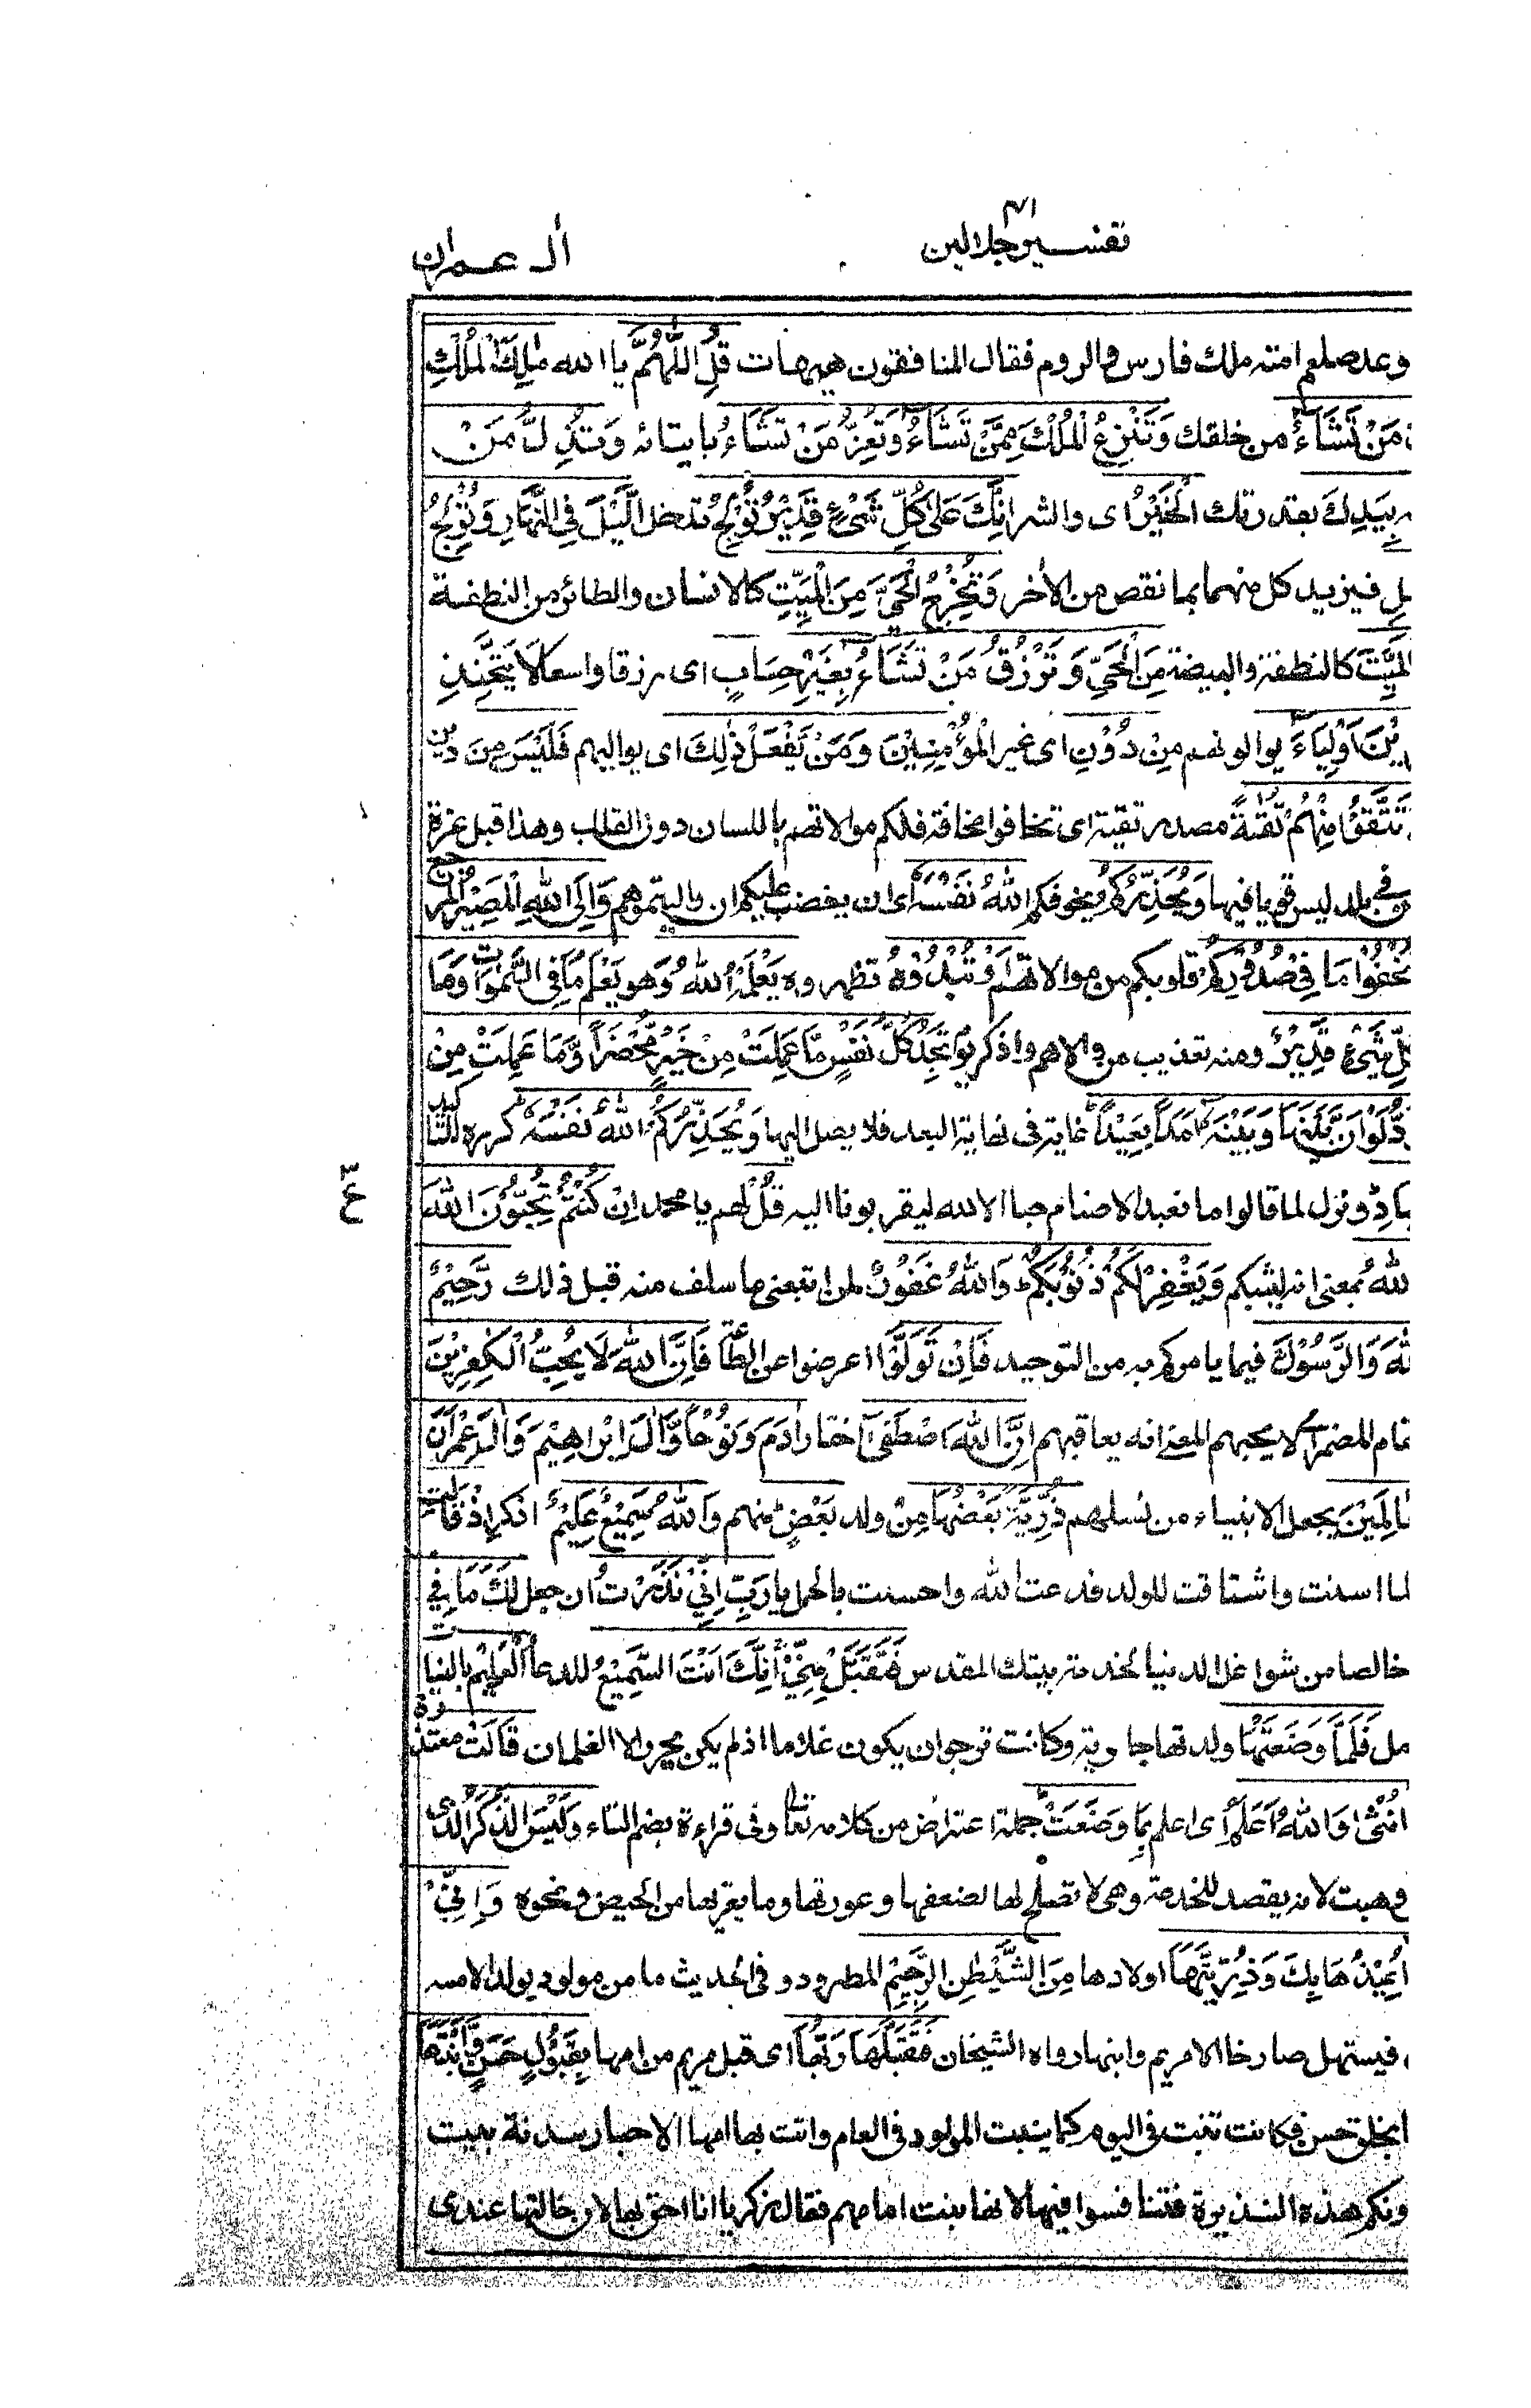 تفسير جلالين
ال عمران
وعد صلعم امته ملك فارس والروم فقال المنافقون هيهات قُلِ اللّٰهُمَّ يا الله مٰلِكَ الْمُلْكِ
مَنْ تَشَآءُ من خلقك وَتَنْزِعُ الْمُلْكَ مِمَّنْ تَشَآءُ وَتُعِزُّ مَنْ تَشَآءُ بايتائه وَتُذِلُّ مَنْ
بِيَدِكَ بقدرتك الْخَيْرُ اى والشر اِنَّكَ عَلٰى كُلِّ شَيْءٍ قَدِيْرٌ تُوْلِجُ تدخل الَّيْلَ فِي النَّهَارِ وَتُوْلِجُ
فيزيد كل منهما بما نقص من الاٰخر وَتُخْرِجُ الْحَيَّ مِنَ الْمَيِّتِ كالانسان والطائر من النطفة
الْمَيِّتَ كالنطفة والبيضة مِنَ الْحَيِّ وَتَرْزُقُ مَنْ تَشَآءُ بِغَيْرِ حِسَابٍ اى رزقا واسعا لَا يَتَّخِذِ
اَوْلِيَآءَ يوالونهم مِنْ دُوْنِ اى غير الْمُؤْمِنِيْنَ وَمَنْ يَّفْعَلْ ذٰلِكَ اى يواليهم فَلَيْسَ مِنَ دين
تَتَّقُوْا مِنْهُمْ تُقٰىةً مصدر تقيته اى تخافوا مخافة فلكم موالاتهم باللسان دون القلب وهذا قبل عزة
فى بلد ليس قويا فيها وَيُحَذِّرُكُمُ يخوفكم اللّٰهُ نَفْسَهٗ اى ان يغضب عليكم ان واليتموهم وَاِلَى اللّٰهِ الْمَصِيْرُ المرجع
تُخْفُوْا مَا فِيْ صُدُوْرِكُمْ قلوبكم من موالاتهم اَوْ تُبْدُوْهُ تظهروه يَعْلَمْهُ اللّٰهُ وَهو يَعْلَمُ مَا فِي السَّمٰوٰتِ وَمَا
كُلِّ شَيْءٍ قَدِيْرٌ ومنه تعذيب من والاهم واذكر يَوْمَ تَجِدُ كُلُّ نَفْسٍ مَّا عَمِلَتْ مِنْ خَيْرٍ مُّحْضَرًا وَّمَا عَمِلَتْ مِنْ
تَوَدُّ لَوْ اَنَّ بَيْنَهَا وَبَيْنَهٗ اَمَدًا بَعِيْدًا غاية فى نهاية البعد فلا يصل اليها وَيُحَذِّرُكُمُ اللّٰهُ نَفْسَهٗ كرره للتاكيد
ونزل لما قالوا ما نعبد الاصنام حبا الا لله ليقربونا اليه قُلْ لهم يا محمد اِنْ كُنْتُمْ تُحِبُّوْنَ اللّٰهَ
اللّٰهُ بمعنى انه يثيبكم وَيَغْفِرْ لَكُمْ ذُنُوْبَكُمْ وَاللّٰهُ غَفُوْرٌ لمن اتبعنى ما سلف منه قبل ذلك رَّحِيْمٌ
اللّٰهَ وَالرَّسُوْلَ فيما يامركم به من التوحيد فَاِنْ تَوَلَّوْا اعرضوا عن الطاعة فَاِنَّ اللّٰهَ لَا يُحِبُّ الْكٰفِرِيْنَ
مقام المضمر اى لا يحبهم المعنى انه يعاقبهم اِنَّ اللّٰهَ اصْطَفٰى اختار اٰدَمَ وَنُوْحًا وَّاٰلَ اِبْرَاهِيْمَ وَاٰلَ عِمْرٰنَ
الْعٰلَمِيْنَ بجعل الانبياء من نسلهم ذُرِّيَّةً بَعْضُهَا مِنْ ولد بَعْضٍ منهم وَاللّٰهُ سَمِيْعٌ عَلِيْمٌ اذكر اِذْ قَالَتِ
لما اسنت واشتاقت للولد فدعت الله واحست بالحمل يا رَبِّ اِنِّيْ نَذَرْتُ ان اجعل لَكَ مَا فِيْ
خالصا من شواغل الدنيا لخدمة بيتك المقدس فَتَقَبَّلْ مِنِّيْ اِنَّكَ اَنْتَ السَّمِيْعُ للدعاء الْعَلِيْمُ بالنيات
فَلَمَّا وَضَعَتْهَا ولدتها جارية وكانت ترجو ان يكون غلاما اذ لم يكن يحرر الا الغلمان قَالَتْ معتذرة
اُنْثٰى وَاللّٰهُ اَعْلَمُ اى اعلم بِمَا وَضَعَتْ جملة اعتراض من كلامه تعالى وفى قراءة بضم التاء وَلَيْسَ الذَّكَرُ الذى
وهبت لانه يقصد للخدمة وهى لا تصلح لها لضعفها وعورتها وما يعتريها من الحيض ونحوه وَاِنِّيْ
اُعِيْذُهَا بِكَ وَذُرِّيَّتَهَا اولادها مِنَ الشَّيْطٰنِ الرَّجِيْمِ المطرود وفى الحديث ما من مولود يولد الا مسه
فيستهل صارخا الا مريم وابنها رواه الشيخان فَتَقَبَّلَهَا رَبُّهَا اى قبل مريم من امها بِقَبُوْلٍ حَسَنٍ وَّاَنْبَتَهَا
بخلق حسن فكانت تنبت فى اليوم كما ينبت المولود فى العام واتت بها امها الاحبار سدنة بيت
دونكم هذه النذيرة فتنافسوا فيها لانها بنت امامهم فقال زكريا انا احق بها لان خالتها عندى